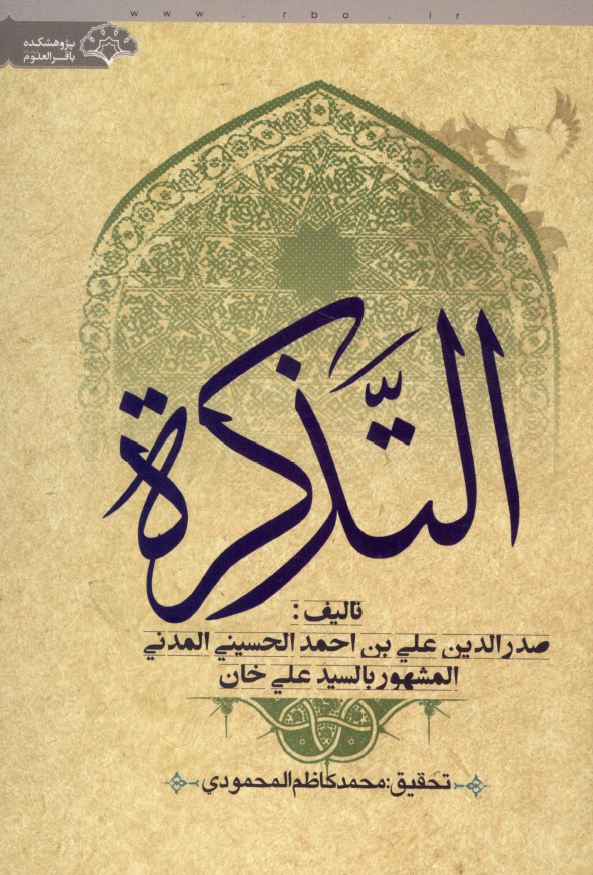 www.rbo.ir
پژوهشکده
باقرالعلوم
التَّذكرة
تاليف :
صدرالدين علي بن احمد الحسيني المدني
المشهور بالسيد علي خان
تحقيق:محمدكاظم المحمودي